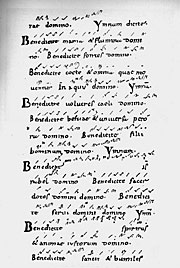 rae domino. Ymnum dicite
Benedicite maria & flumina domi
no. Benedicite fontes domino.
Benedicite cete & omnia quae mo
uentur In aquis domino Ymn.
Benedicite uolucres caeli domino.
Benedicite bestiae & uniuersa peco
ra domino. Benedicite filii
hominum domino. Ymnum.
Benedicite
israhel domino Benedicite sacer
dotes domini domino Benedici
te serui domini domino Ymn
Benedicite spiritus
& animae iustorum domino.
Benedicite sancti & humiles